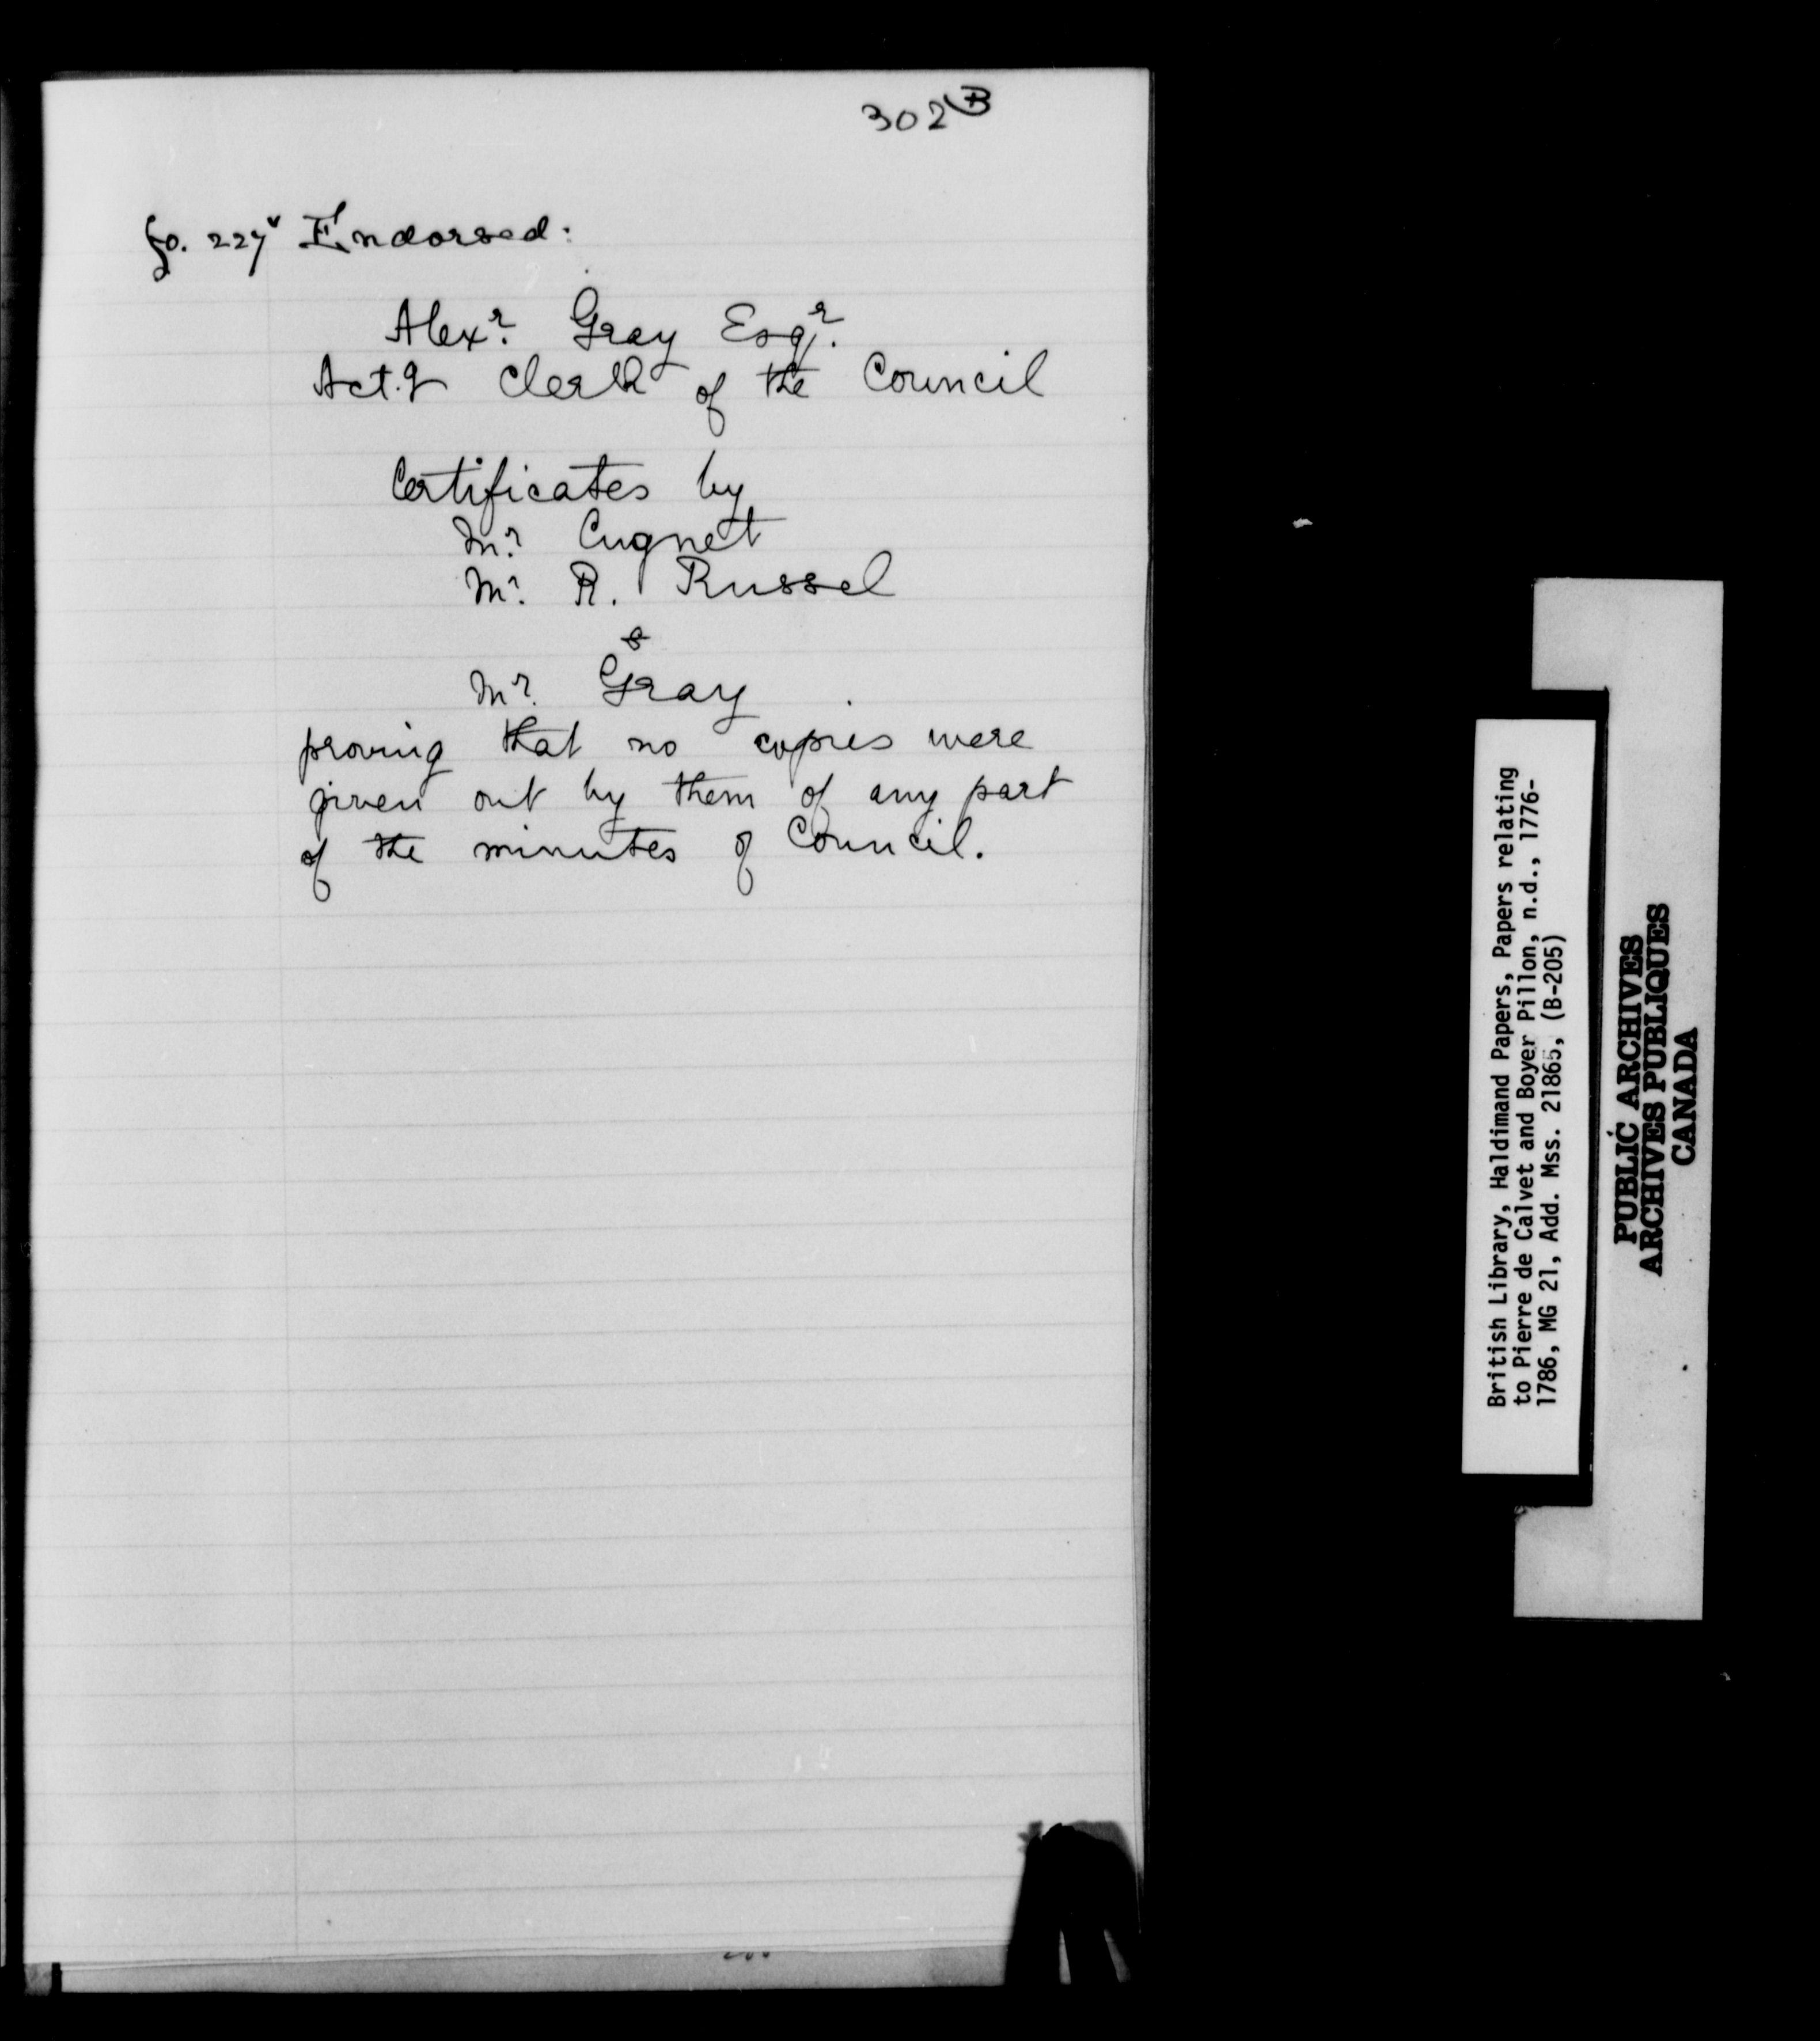 302B
fo. 227v Endorsed:
Alexr. Gray Esqr.
Act.g Clerk of the Council
Certificates by
Mr. Cugnet
Mr. R. Russel
&
Mr. Gray
proving that no copies were
given out by them of any part
of the minutes of Council.
British Library, Haldimand Papers, Papers relating
to Pierre de Calvet and Boyer Pillon, n.d., 1776-
1786, MG 21, Add. Mss. 21865, (B-205)
PUBLIC ARCHIVES
ARCHIVES PUBLIQUES
CANADA